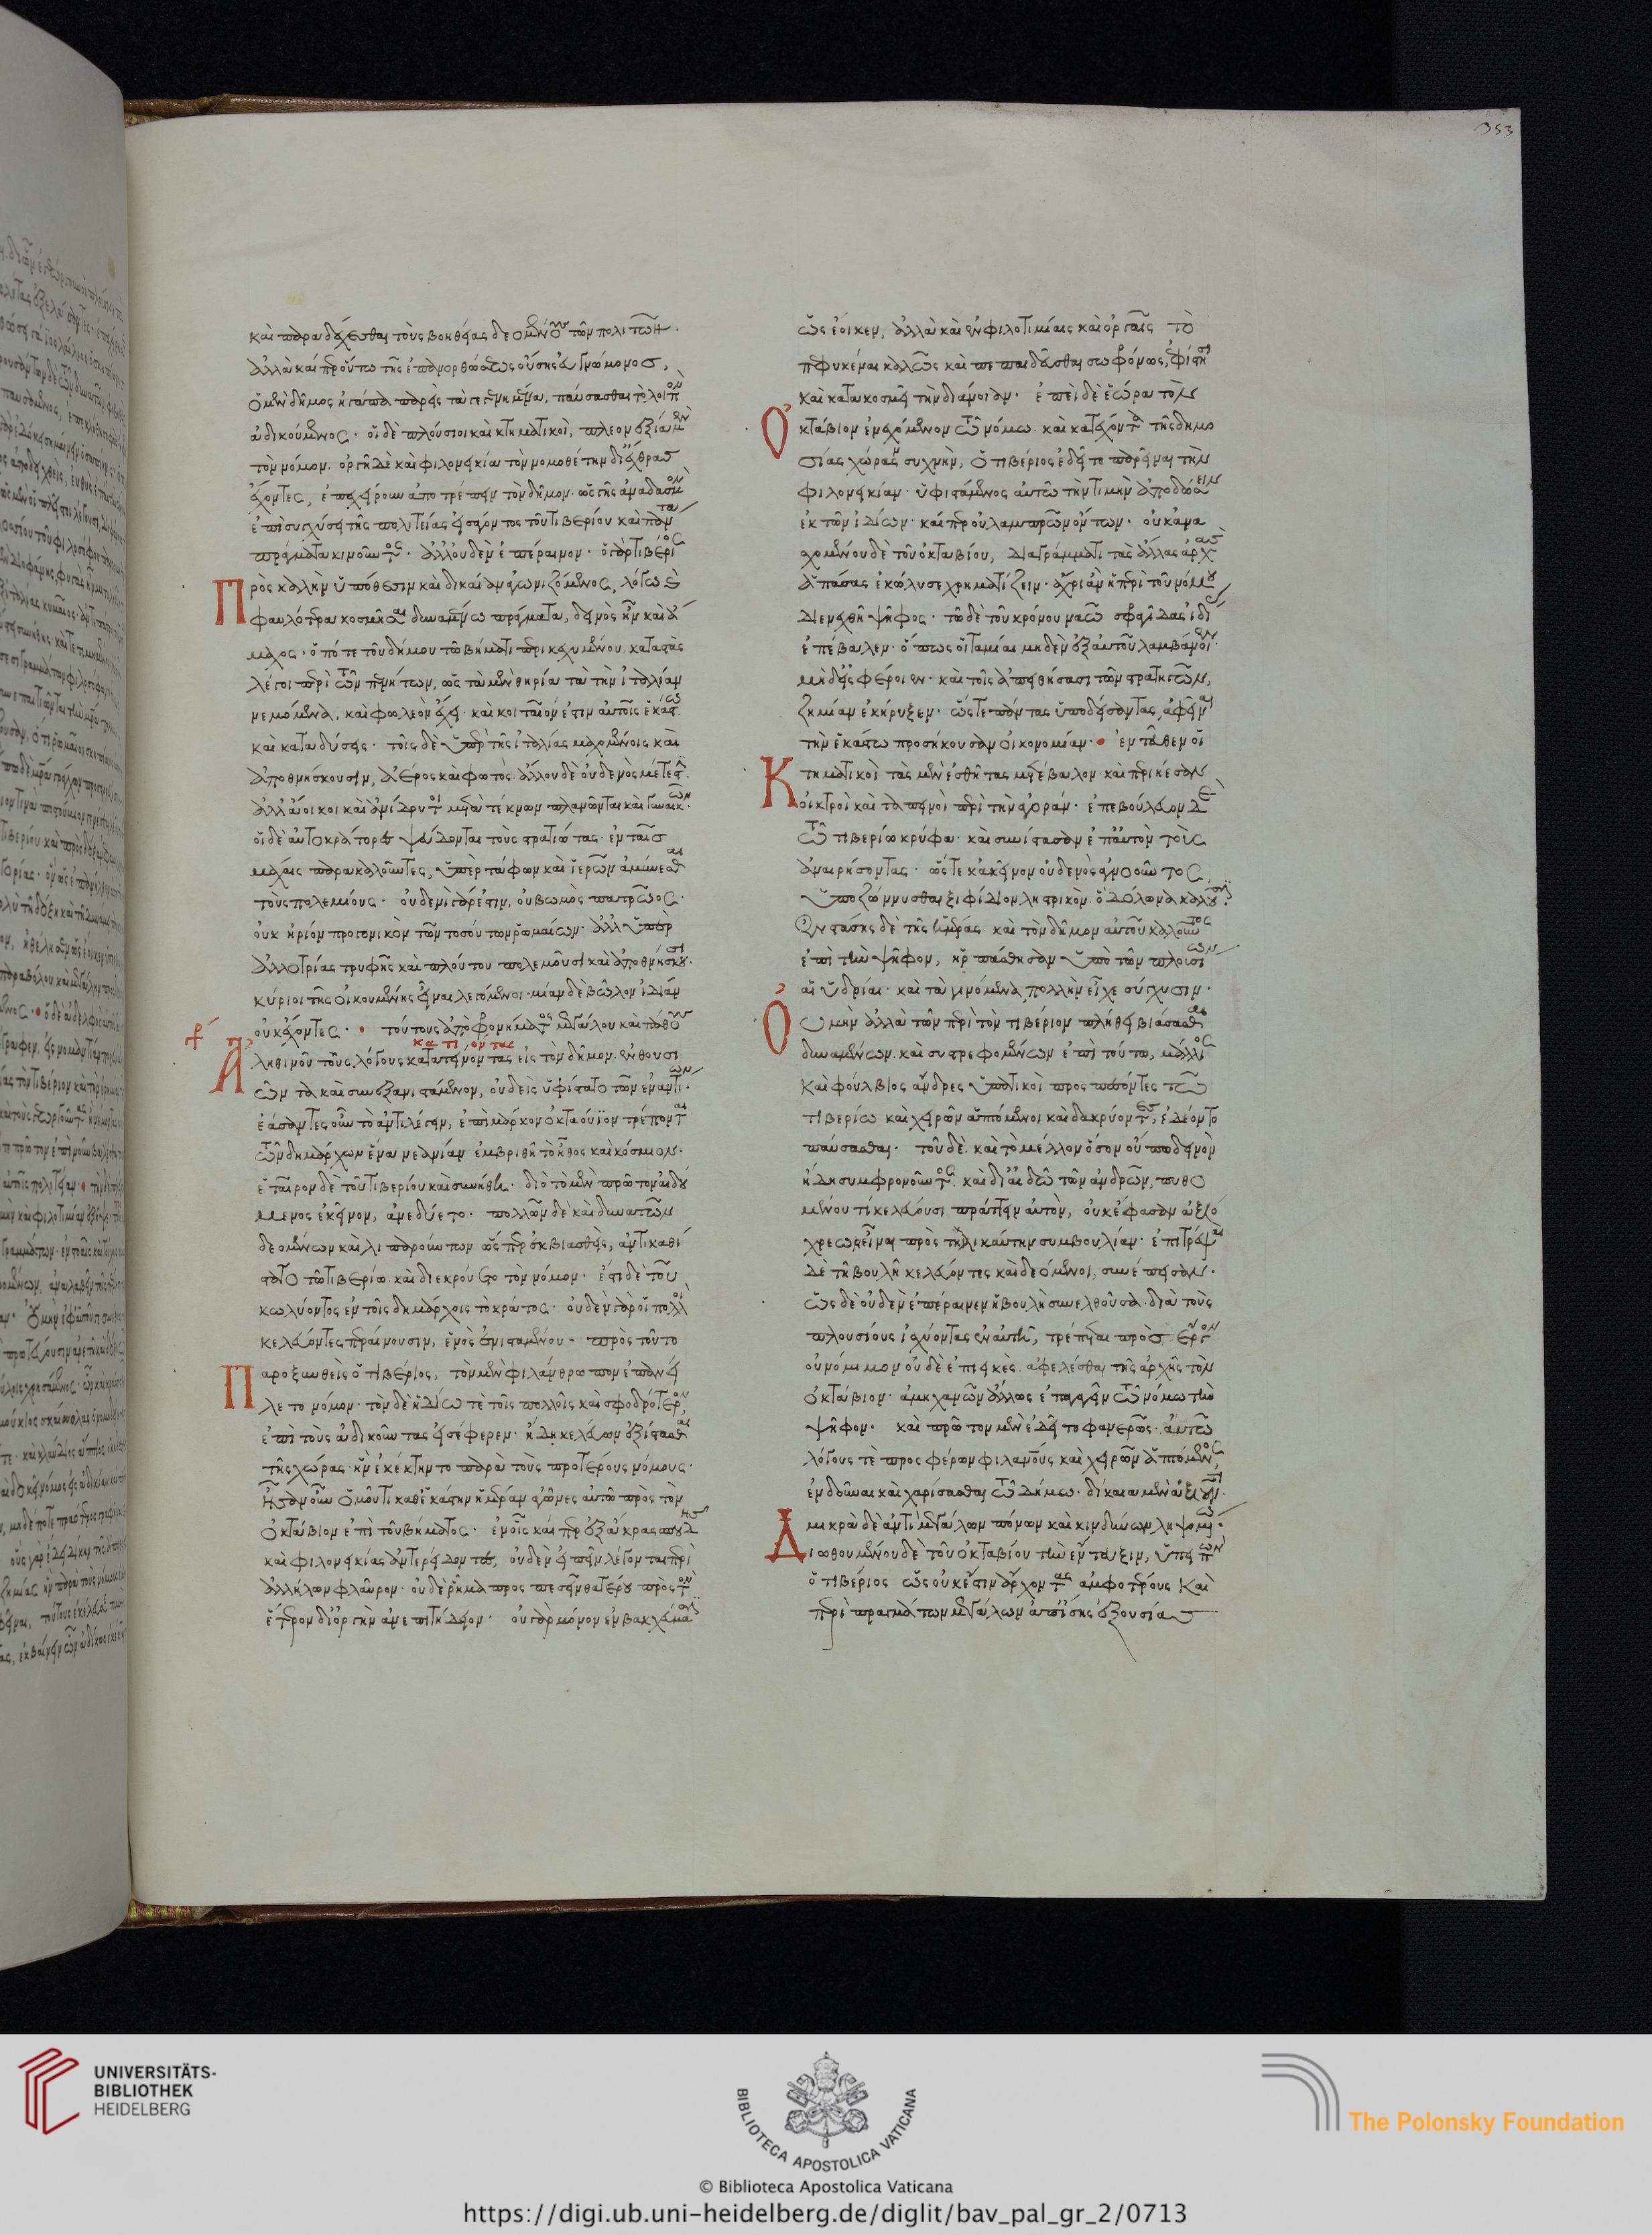 353
καὶ παραδέχεσθαι τοὺς βοηθείας δεομένους τῶν πολιτῶν.
ἀλλὰ καίπερ οὕτω τῆς ἐπανορθώσεως οὔσης εὐγνώμονος,
ὁ μὲν δῆμος ἠγάπα παρεὶς τὰ γεγενημένα, παύσασθαι τὸ λοιπὸν
ἀδικούμενος. οἱ δὲ πλούσιοι καὶ κτηματικοὶ, πλεονεξία μὲν
τὸν νόμον. ὀργῆ δὲ καὶ φιλονεικία τὸν νομοθέτην δι' ἔχθρας
ἔχοντες, ἐπεχείρουν ἀποτρέπειν τὸν δῆμον. ὡς γῆς ἀναδασμὸν
ἐπὶ συγχύσει τῆς πολιτείας εἰσάγοντος τοῦ τιβερίου καὶ πάντα
πράγματα κινοῦντος. ἀλλ' οὐδὲν ἐπέραινον. ὁ γὰρ τιβέριος
Πρὸς καλὴν ὑπόθεσιν καὶ δικαίαν ἀγωνιζόμενος, λόγω καὶ
φαυλότερα κοσμῆσαι δυναμένω πράγματα, δεινὸς ἦν καὶ ἄ
μαχος. ὁπότε τοῦ δήμου τῶ βήματι περικεχυμένου καταστὰς
λέγοι περὶ τῶν πενήτων, ὡς τὰ μὲν θηρία τὰ τὴν ἰταλίαν
νεμόμενα, καὶ φωλεὸν ἔχει καὶ κοιταῖόν ἐστιν αὐτοῖς ἑκάστω
καὶ καταδύσεις. τοῖς δὲ ὑπὲρ τῆς ἰταλίας μαχομένοις καὶ
ἀποθνήσκουσιν, ἀέρος καὶ φωτὸς. ἄλλου δὲ οὐδενὸς μέτεστι.
ἀλλ' ἄοικοι καὶ ἀνίδρυτοι μετὰ τέκνων πλανῶνται καὶ γυναικῶν.
οἱ δὲ αὐτοκράτορες ψεύδονται τοὺς στρατιώτας. ἐν ταῖς
μάχαις παρακαλοῦντες, ὑπὲρ τάφων καὶ ἱερῶν ἀμύνεσθαι
τοὺς πολεμίους. οὐδενὶ γάρ ἐστιν, οὐ βωμὸς πατρῶος.
οὐκ ἠρίον προγονικὸν τῶν τοσούτων ρωμαίων. ἀλλ' ὑπὲρ
ἀλλοτρίας τρυφῆς καὶ πλούτου πολεμοῦσι καὶ ἀποθνήσκουσι.
κύριοι τῆς οἰκουμένης εἶναι λεγόμενοι. μίαν δὲ βῶλον ἰδίαν
οὐκ ἔχοντες. τούτους ἀπὸ φρονήματος μεγάλου καὶ πάθους
κατιόντας
Ἀληθινοῦ τοὺς λόγους κατατείνοντας εἰς τὸν δῆμον. ἐνθουσι
ῶντα καὶ συνεξανιστάμενον, οὐδεὶς ὑφίστατο τῶν ἐναντίων.
ἐάσαντες οὖν τὸ ἀντιλέγειν, ἐπὶ μάρκον ὀκταούϊον τρέπονται
τῶν δημάρχων ἕνα νεανίαν ἐμβριθῆ τὸ ἦθος καὶ κόσμιον.
ἑταῖρον δὲ τοῦ τιβερίου καὶ συνήθη. διὸ τὸ μὲν πρῶτον αἰδού
μενος ἐκεῖνον, ἀνεδύετο. πολλῶν δὲ καὶ δυνατῶν
δεομένων καὶ λιπαρούντων ὥσπερ ἐκβιασθεὶς, ἀντικαθί
στατο τῶ τιβερίω. καὶ διεκρούετο τὸν νόμον. ἔστι δὲ τοῦ
κωλύοντος ἐν τοῖς δημάρχοις τὸ κράτος. οὐδὲν γὰρ οἱ πολλοὶ
κελεύοντες περαίνουσιν, ἑνὸς ἐνισταμένου. πρὸς τοῦτο
Παροξυνθεὶς ὁ τιβέριος, τὸν μὲν φιλάνθρωπον ἐπανεί
λετο νόμον. τὸν δὲ ἡδίω τὲ τοῖς πολλοῖς καὶ σφοδρότερον
ἐπὶ τοὺς ἀδικοῦντας εἰσέφερεν. ἤδη κελεύων ἐξίστασθαι
τῆς χώρας ἣν ἐκέκτηντο παρὰ τοὺς προτέρους νόμους.
Ἦσαν οὖν ὁμοῦ τι καθ' ἑκάστην ἡμέραν ἀγῶνες αὐτῶ πρὸς τὸν
ὀκτάβιον ἐπὶ τοῦ βήματος. ἐν οἷς καίπερ ἐξ ἄκρας σπουδῆς
καὶ φιλονεικίας ἀντερείδοντες, οὐδὲν εἰπεῖν λέγονται περὶ
ἀλλήλων φλαῦρον. οὐδὲ ῥῆμα προσπεσεῖν θατέρου πρὸς τὸν
ἕτερον δι' ὀργὴν ἀνεπιτήδειον. οὐ γὰρ μόνον ἐν βακχεύμασιν
ὡς ἔοικεν, ἀλλὰ καὶ ἐν φιλοτιμίαις καὶ ὀργαῖς τὸ
πεφυκέναι καλῶς καὶ πεπαιδεῦσθαι σωφρόνως, ἐφίστησι
καὶ κατακοσμεῖ τὴν διάνοιαν. ἐπεὶ δὲ ἑώρα τὸν
Ὀκτάβιον ἐνεχόμενον τῶ νόμω. καὶ κατέχοντα τῆς δημο
σίας χώρας συχνὴν, ὁ τιβέριος ἐδεῖτο παρεῖναι τὴν
φιλονεικίαν. ὑφιστάμενος αὐτῶ τὴν τιμὴν ἀποδώσειν
ἐκ τῶν ἰδίων. καίπερ οὐ λαμπρῶν ὄντων. οὐκ ἀνα
σχομένου δὲ τοῦ ὀκταβίου, διαγράμματι τὰς ἄλλας ἀρχὰς
ἁπάσας ἐκώλυσε χρηματίζειν. ἄχρι ἂν ἡ περὶ τοῦ νόμου
διενεχθῆ ψῆφος. τῶ δὲ τοῦ κρόνου ναῶ σφραγῖδας ἰδίας
ἐπέβαλεν. ὅπως οἱ ταμίαι μηδὲν ἐξ αὐτοῦ λαμβάνοιεν
μηδ' εἰσφέροιεν. καὶ τοῖς ἀπειθήσασι τῶν στρατηγῶν,
ζημίαν ἐκήρυξεν. ὥστε πάντας ὑποδείσαντας ἀφεῖναι
τὴν ἑκάστω προσήκουσαν οἰκονομίαν. ἐνταῦθεν οἱ
Κτηματικοὶ τὰς μὲν ἐσθῆτας μετέβαλον. καὶ περιήεσαν
οἰκτροὶ καὶ ταπεινοὶ περὶ τὴν ἀγοράν. ἐπεβούλευον δὲ
τῶ τιβερίω κρύφα. καὶ συνίστασαν ἐπ' αὐτὸν τοὺς
ἀναιρήσοντας. ὥστε κἀκεῖνον οὐδενὸς ἀγνοοῦντος,
ὑποζώννυσθαι ξιφίδιον ληστρικὸν. ὃ δόλωνα καλοῦσιν.
Ἐνστάσης δὲ τῆς ἡμέρας. καὶ τὸν δῆμον αὐτοῦ καλοῦντος
ἐπὶ τὴν ψῆφον, ἡρπάσθησαν ὑπὸ τῶν πλουσίων
αἱ ὑδρίαι. καὶ τὰ γινόμενα πολλὴν εἶχε σύγχυσιν.
Οὐ μὴν ἀλλὰ τῶν περὶ τὸν τιβέριον πλήθει βιάσασθαι
δυναμένων. καὶ συστρεφομένων ἐπὶ τούτω, μάλλιος
καὶ φούλβιος ἄνδρες ὑπατικοὶ προσπεσόντες τῶ
τιβερίω καὶ χειρῶν ἁπτόμενοι καὶ δακρύοντες, ἐδέοντο
παύσασθαι. τοῦ δὲ. καὶ τὸ μέλλον ὅσον οὔπω δεινὸν
ἤδη συμφρονοῦντος. καὶ δι' αἰδῶ τῶν ἀνδρῶν, πυθο
μένου τί κελεύουσι πράττειν αὐτὸν, οὐκ ἔφασαν ἀξιό
χρεως εἶναι πρὸς τηλικαύτην συμβουλίαν. ἐπιτρέψαι
δὲ τῆ βουλῆ κελεύοντες καὶ δεόμενοι, συνέπεισαν.
ὡς δὲ οὐδὲν ἐπέραινεν ἡ βουλὴ συνελθοῦσα. διὰ τοὺς
πλουσίους ἰσχύοντας ἐν αὐτῆ, τρέπεται πρὸς ἔργον
οὐ νόμιμον οὐδὲ ἐπιεικὲς. ἀφελέσθαι τῆς ἀρχῆς τὸν
ὀκτάβιον. ἀμηχανῶν ἄλλως ἐπαγαγεῖν τῶ νόμω τὴν
ψῆφον. καὶ πρῶτον μὲν ἐδεῖτο φανερῶς αὐτοῦ
λόγους τὲ προσφέρων φιλανους καὶ χειρῶν ἁπτόμενος,
ἐνδοῦναι καὶ χαρίσασθαι τῶ δήμω. δίκαια μὲν ἀξιοῦντι.
μικρὰ δὲ ἀντὶ μεγάλων πόνων καὶ κινδύνων ληψομένω.
Διωθουμένου δὲ τοῦ ὀκταβίου τὴν ἔντευξιν, ὑπειπὼν
ὁ τιβέριος ὡς οὐκ ἔστιν ἄρχοντας ἀμφοτέρους καὶ
περὶ πραγμάτων μεγάλων ἀπ' ἴσης ἐξουσίας
UNIVERSITÄTS-
BIBLIOTHEK
HEIDELBERG
BIBLIOTECA APOSTOLICA VATICANA
© Biblioteca Apostolica Vaticana
The Polonsky Foundation
https://digi.ub.uni-heidelberg.de/diglit/bav_pal_gr_2/0713